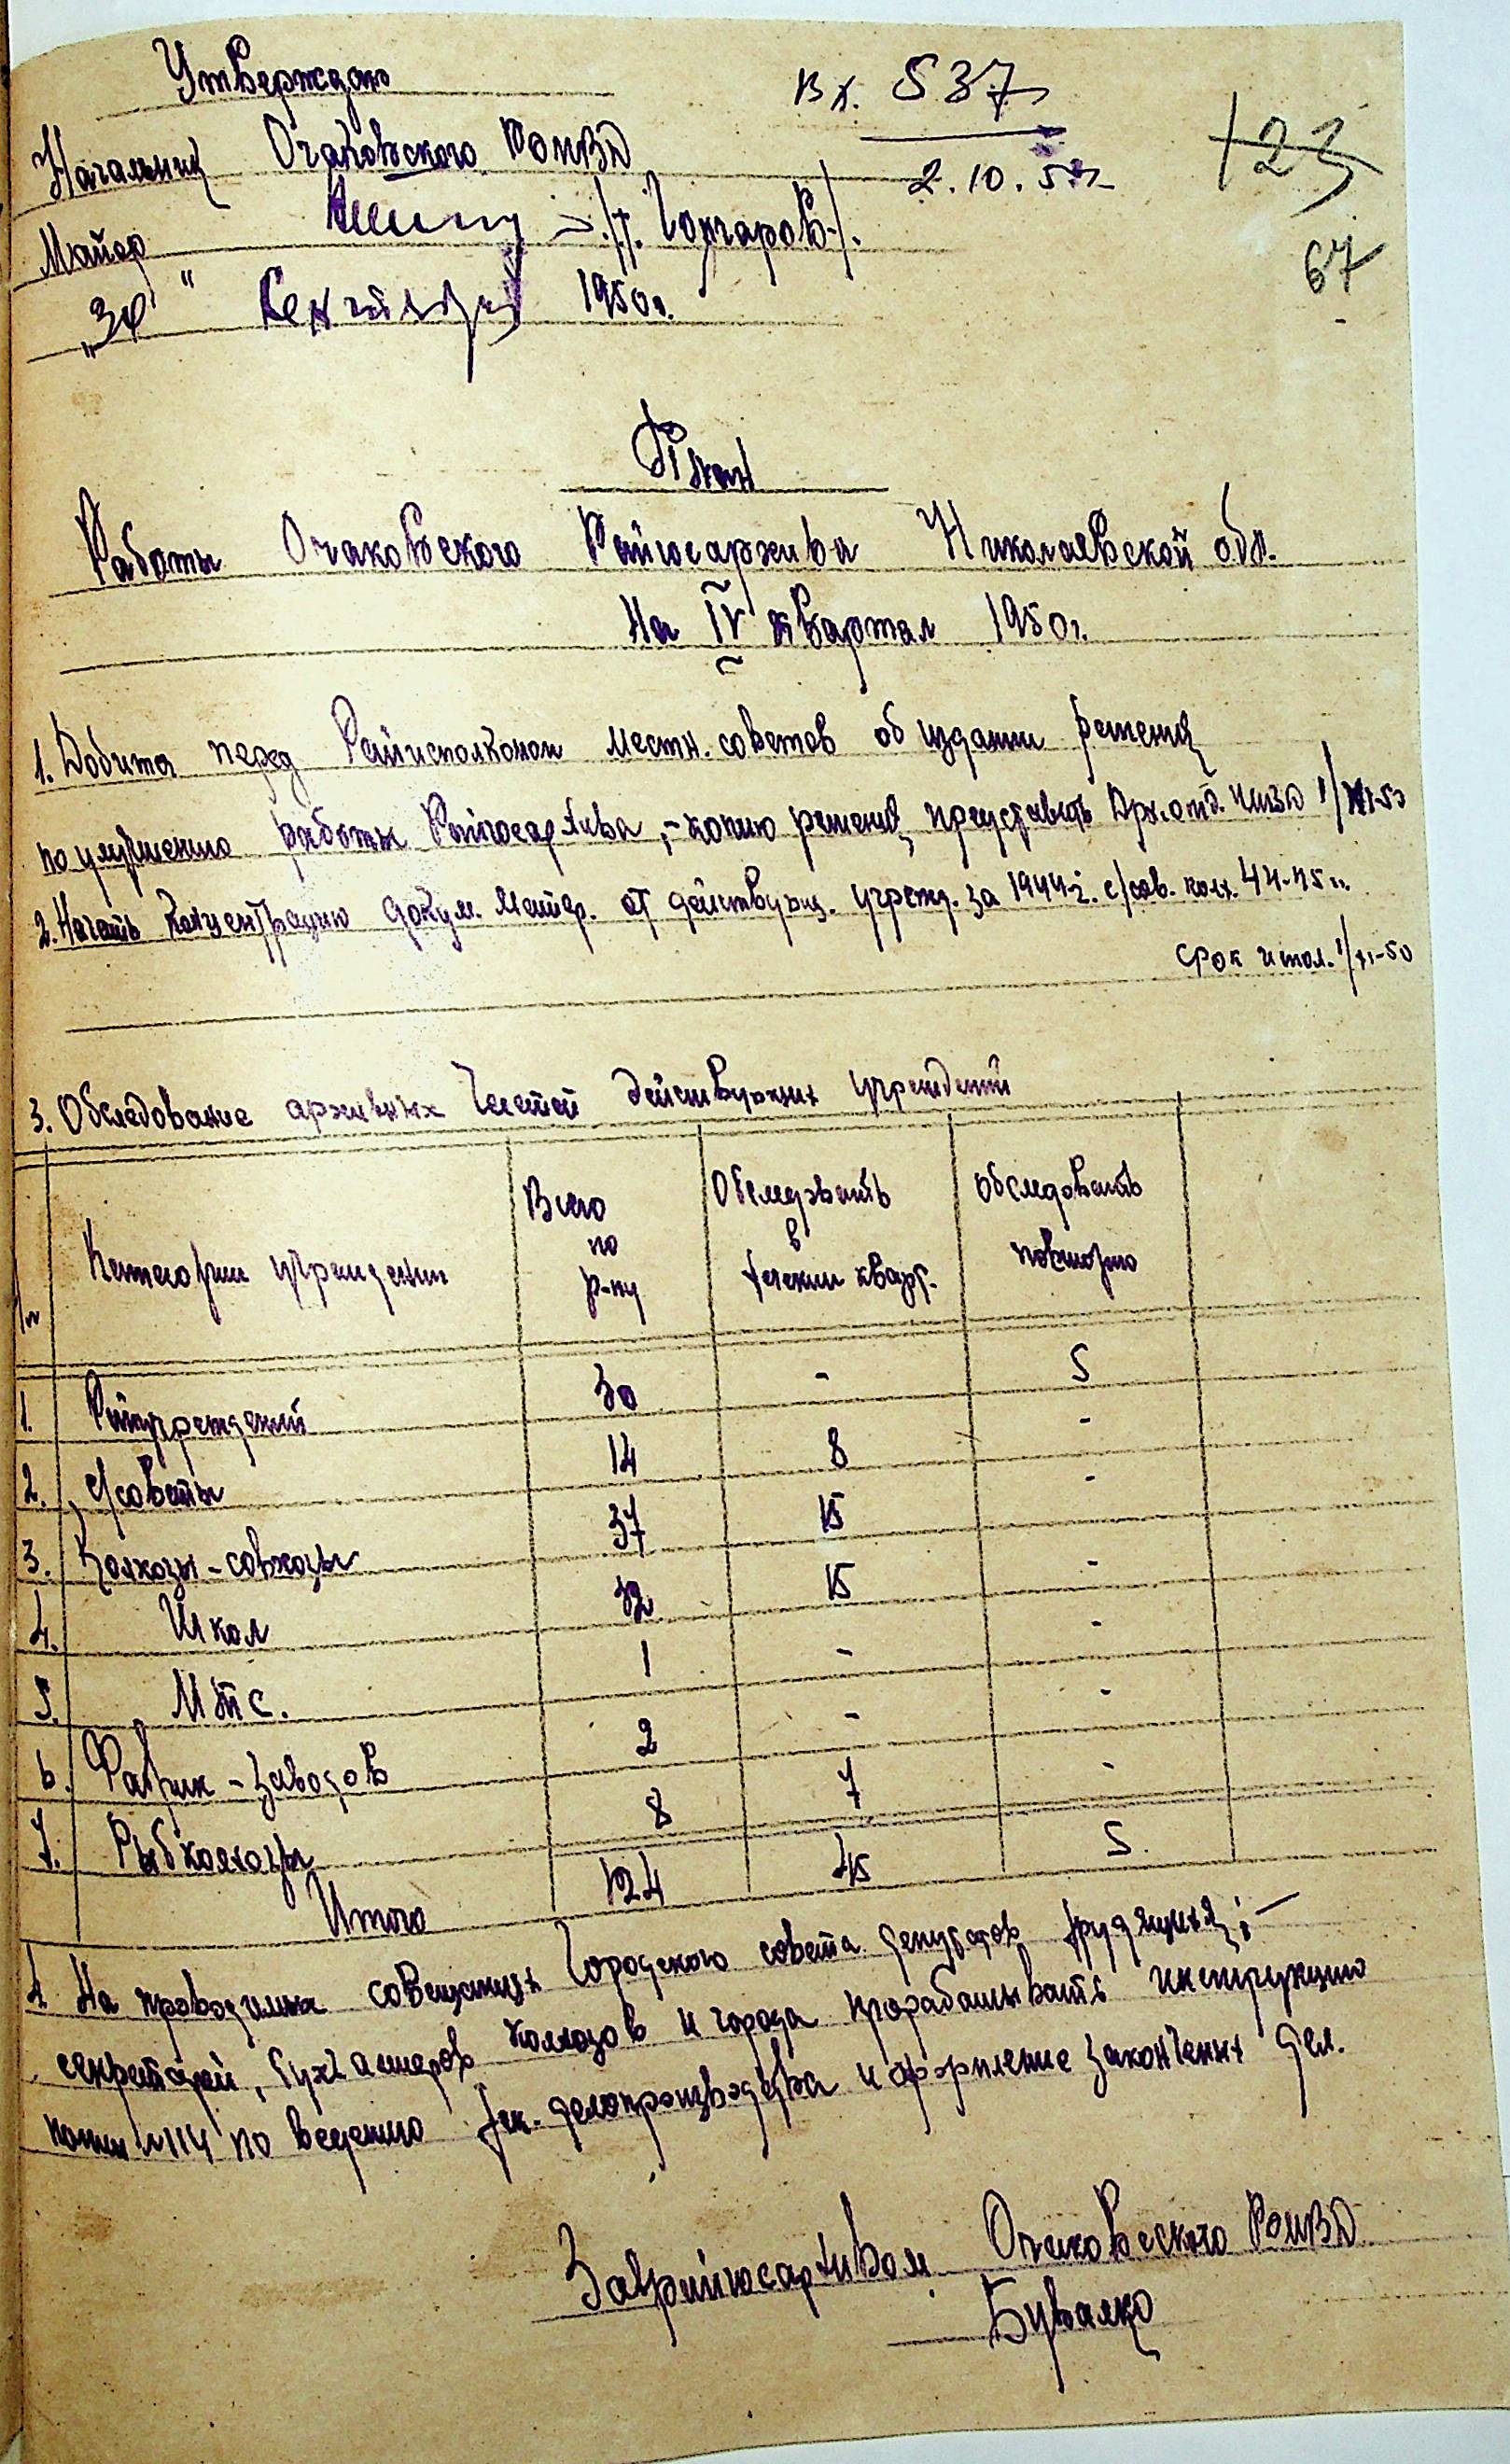 Утверждаю
Вх. 537
2.10.50г.
123
67
Начальник Очаковского РОМВД
Майор /т. Гончаров/.
"30" Сентября 1950г.
План
Работы Очаковского Райгосархива Николаевской обл.
На IV квартал 1950г.
1. Добится перед Райисполкомом местн. советов об издании решения
по улучшению работы Райгосархива, - копию решения представить Арх.отд. УМВД 1/XI-50
2. Начать концентрацию докум. матер. от действующ. учрежд. за 1944г. с/сов. колх. 44-45 г.
срок испол. 1/XI-50
3. Обследование архивных частей действующих учреждений
№ Категории учреждений Всего по р-ну Обследовать в течении кварт. обследовать повторно
1. Райучреждений 30 - 5
2. с/советы 14 8 -
3. Колхозы-совхозы 37 15 -
4. Школ 32 15 -
5. МТС. 1 - -
6. Фабрик-заводов 2 - -
7. Рыбколхозы 8 7 -
Итого 124 45 5.
4. На проводимых совещаниях Городского совета депутатов трудящихся; -
секретарей, бухгалтеров колхозов и города прорабатывать инструкцию
№114 по ведению тек. делопроизводства и оформление законченых дел.
Заврайгосархивом Очаковского РОМВД